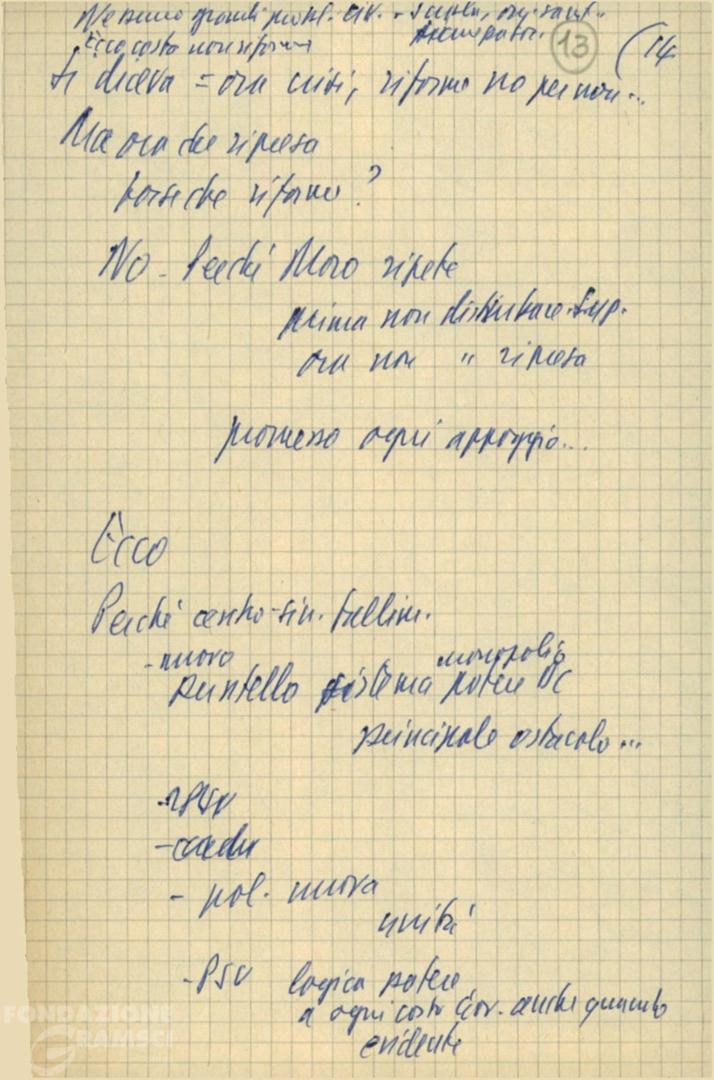 Nessuno grandi probl. civ. - scuola, osp. sanit..
Ecco costo non riforme
13
(14
Si diceva = ora crisi, riforme no per non...
Ma ora che ripresa
forse che riforme?
No - Perché Moro ripete
prima non disturbare
ora non " ripresa
promesso ogni appoggio...
Ecco
Perché centro-sin. fallim.
- nuovo monopolio
puntello sistema potere DC
principale ostacolo...
- pol. nuova
unità
- PSU logica potere
a ogni costo Gov. anche quando
evidente
FONDAZIONE
GRAMSCI